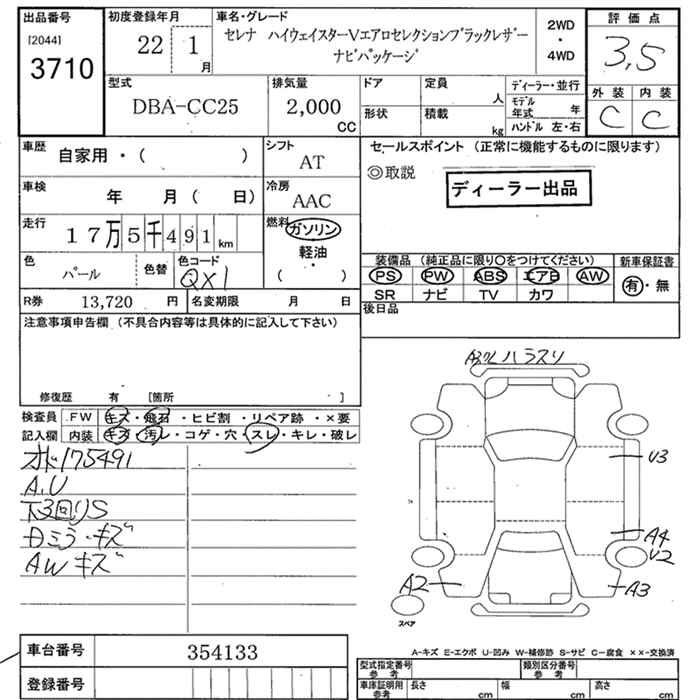 出品番号
[2044]
3710
初度登録年月
22 1 月
車名・グレード
セレナ ハイウェイスターVエアロセレクションブラックレザー
ナビパッケージ
2WD
・
4WD
評価点
3,5
外装 内装
C C
型式
DBA-CC25
排気量
2,000
CC
ドア
形状
定員 人
積載 kg
ディーラー・並行
モデル年式 年
ハンドル 左・右
車歴 自家用・( )
シフト
AT
車検 年 月( 日)
冷房
AAC
走行 17万5千491km
燃料 ガソリン
軽油
・
( )
色 パール
色替
色コード
QX1
R券 13,720 円
名変期限 月 日
セールスポイント (正常に機能するものに限ります)
◎取説
ディーラー出品
装備品 (純正品に限り〇をつけてください)
PS PW ABS エアB AW
SR ナビ TV カワ
新車保証書
有・無
後日品
注意事項申告欄 (不具合内容等は具体的に記入して下さい)
修復歴 有 [箇所 ]
検査員
記入欄
FW キズ・飛石・ヒビ割・リペア跡・×要
内装 キズ・汚レ・コゲ・穴・スレ・キレ・破レ
オド175491
A.U
下3回りS
Dミラ・キズ
AWキズ
ハラスリ
U3
A4
U2
A2
A3
スペア
A-キズ E-エクボ U-凹み W-補修跡 S-サビ C-腐食 ××-交換済
車台番号 354133
登録番号
型式指定番号
参考
類別区分番号
参考
車庫証明用
参考
長さ cm
幅 cm
高さ cm